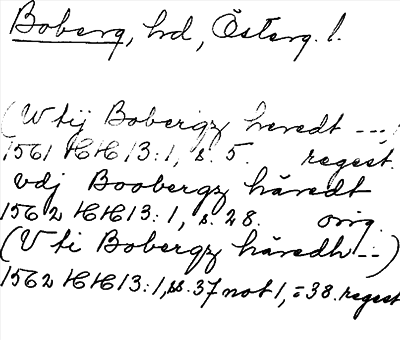 Boberg, hd, Österg. l.
(W tij Bobergz heredt ---)
1561 HH 13:1, s. 5. regest.
vdj Boobergz häredt
1562 HH 13:1, s. 28. orig.
(V ti Bobergz häredh --)
1562 HH 13:1, ss. 37 not 1, = 38. regest